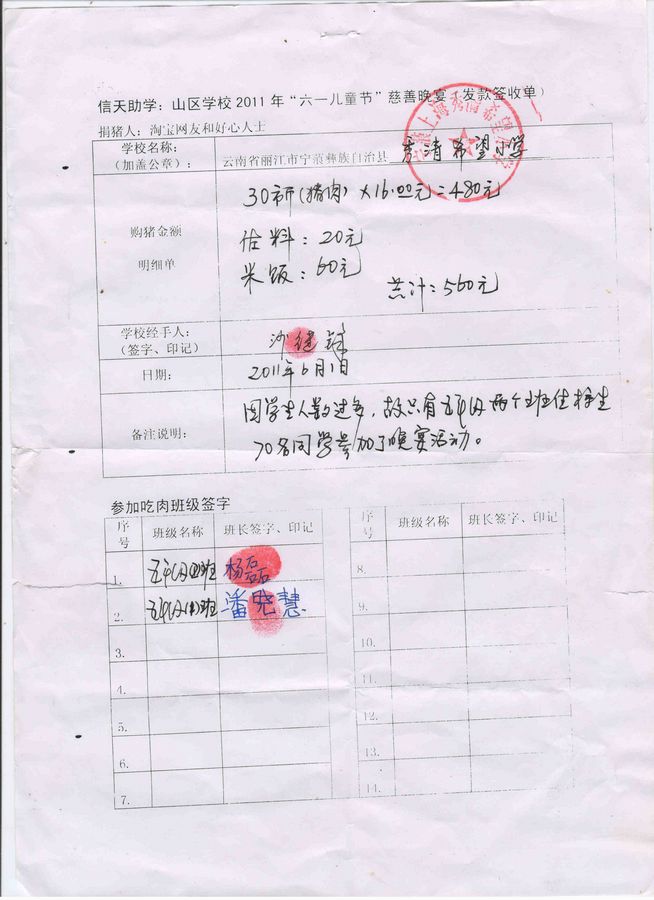 信天助学：山区学校2011年“六一儿童节”慈善晚宴（发款签收单）
捐猪人：淘宝网友和好心人士
学校名称：
（加盖公章）：
云南省丽江市宁蒗彝族自治县 秀清希望小学
购猪金额
明细单
30市斤(猪肉)×16.00元=480元
佐料：20元
米饭：60元
共计：560元
学校经手人：
（签字、印记）
沙建
日期：
2011年6月1日
备注说明：
因学生人数过多，故只有五年级两个班住校生
70名同学参加了晚宴活动。
参加吃肉班级签字
序号 班级名称 班长签字、印记 序号 班级名称 班长签字、印记
1. 五年级 班 杨磊 8.
2. 五年级 班 潘晓慧 9.
3. 10.
4. 11.
5. 12.
6. 13.
7. 14.